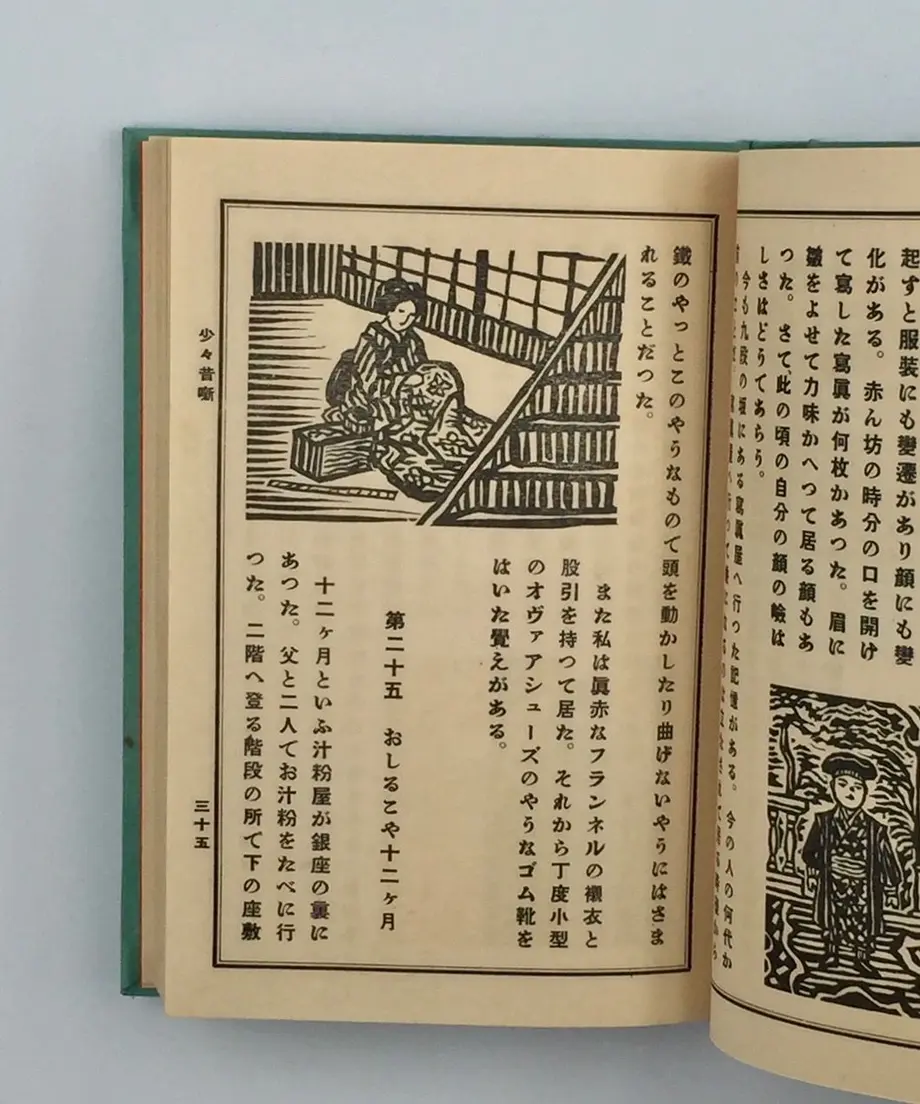 起すと服装にも變遷があり顔にも變
化がある。赤ん坊の時分の口を開け
て寫した寫眞が何枚かあつた。眉に
皺をよせて力味かへつて居る顔もあ
つた。さて、此の頃の自分の顔の險は
しさはどうであらう。
今も九段の坂にある寫眞屋へ行つた記憶がある。今の人の何代か
鐵のやっとこのやうなもので頭を動かしたり曲げないやうにはさま
れることだつた。
また私は眞赤なフランネルの襯衣と
股引を持つて居た。それから丁度小型
のオヴァアシューズのやうなゴム靴を
はいた覺えがある。
第二十五 おしるこや十二ヶ月
十二ヶ月といふ汁粉屋が銀座の裏に
あつた。父と二人でお汁粉をたべに行
つた。二階へ登る階段の所で下の座敷
少々昔噺
三十五